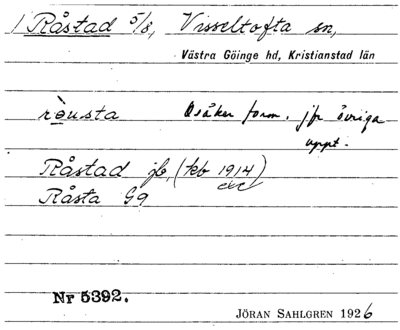 1 Råstad 5/8, Visseltofta sn,
Västra Göinge hd, Kristianstad län
rèusta Osäker form. jfr övriga
uppt.
Råstad jb, (teb 1914)
Råsta G9
Nr 5392.
JÖRAN SAHLGREN 1926